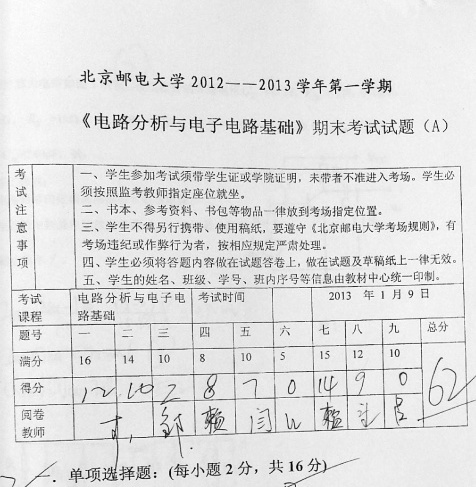 北京邮电大学2012——2013学年第一学期
《电路分析与电子电路基础》期末考试试题（A）
考试注意事项
一、学生参加考试须带学生证或学院证明，未带者不准进入考场。学生必
须按照监考教师指定座位就坐。
二、书本、参考资料、书包等物品一律放到考场指定位置。
三、学生不得另行携带、使用稿纸，要遵守《北京邮电大学考场规则》，有
考场违纪或作弊行为者，按相应规定严肃处理。
四、学生必须将答题内容做在试题答卷上，做在试题及草稿纸上一律无效。
五、学生的姓名、班级、学号、班内序号等信息由教材中心统一印制。
考试课程 电路分析与电子电路基础 考试时间 2013 年 1 月 9 日
题号 一 二 三 四 五 六 七 八 九 总分
满分 16 14 10 8 10 5 15 12 10
得分 12 10 2 8 7 0 14 9 0 62
阅卷教师
一. 单项选择题：（每小题 2 分，共 16 分）